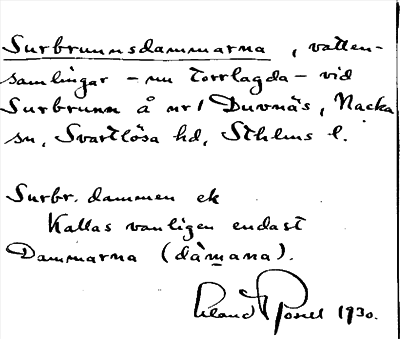 Surbrunnsdammarna, vatten-
samlingar – nu torrlagda – vid
Surbrunn å nr 1 Duvnäs, Nacka
sn, Svartlösa hd, Sthlms l.
Surbr. dammen ek
Kallas vanligen endast
Dammarna (dàmana).
1930.